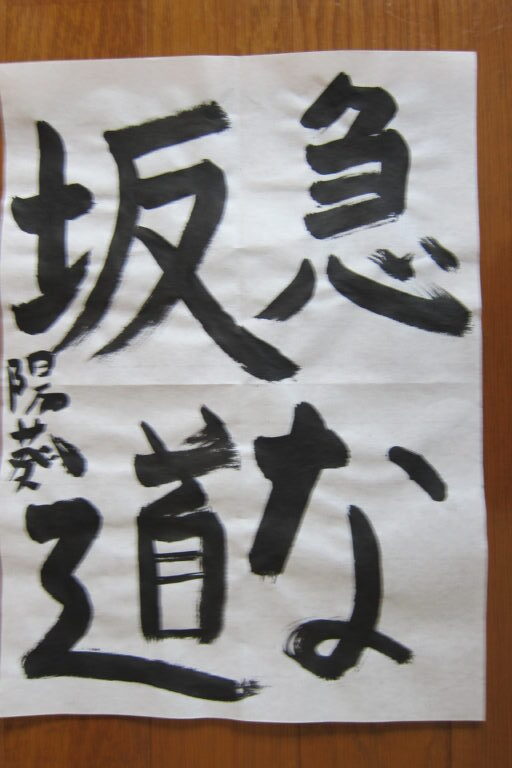 急な
坂道
陽菜